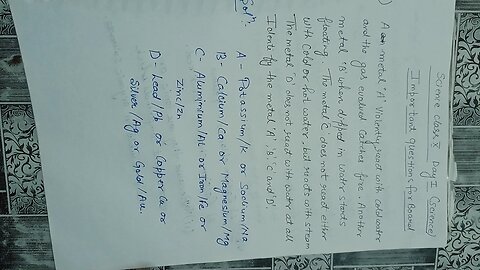 Science class X Day 1 (Science)
Important questions for Board
) A metal 'A' violently react with cold water
and the gas evolved catches fire. Another
metal 'B' when dipped in water starts
floating. The metal 'C' does not react either
with cold or hot water, but reacts with steam
The metal 'D' does not react with water at all
Identify the metal 'A' 'B' 'C' and 'D'.
Solⁿ.
A - Potassium/K or Sodium/Na
B - Calcium/Ca or Magnesium/Mg
C - Aluminium/Al or Iron/Fe or
Zinc/Zn
D - Lead/Pb or Copper Cu or
Silver/Ag or Gold/Au.